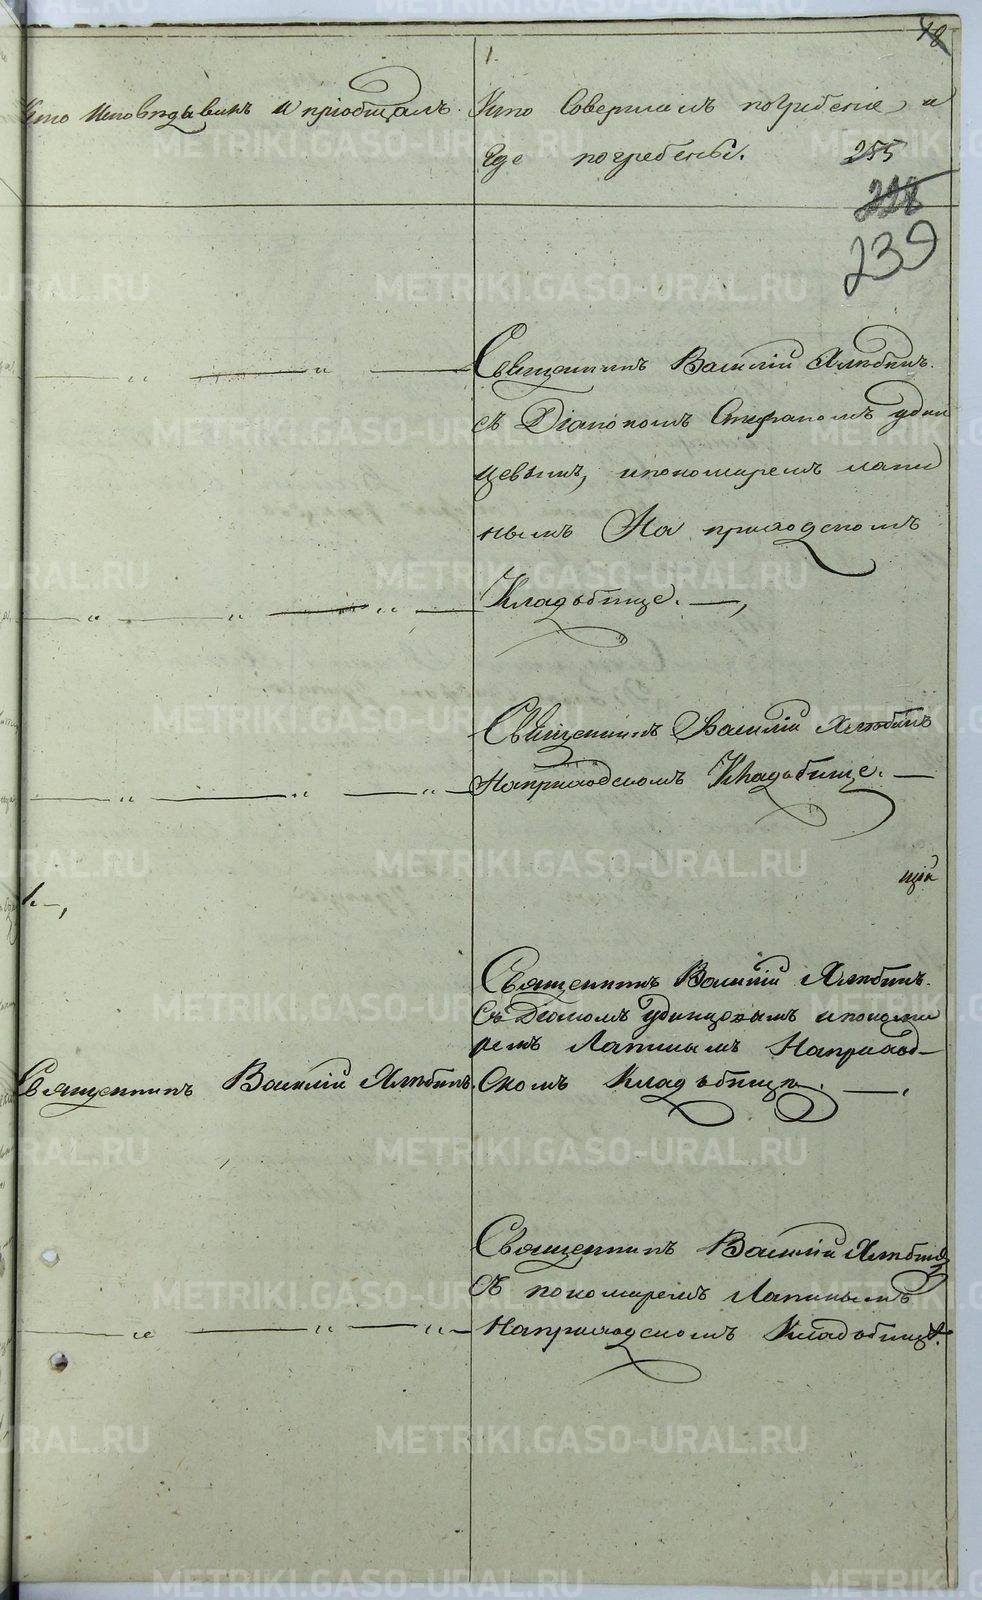 48
Кто исповѣдывалъ и пріобщалъ.
Кто Совершалъ погребеніе, и
Где погребены.
255
228
239
Священникъ Василій Хлѣбинъ.
съ Діакономъ Стефаномъ удин
цевымъ, ипономаремъ лапи
нымъ На приходскомъ
Кладъбище.
Священникъ Василій Хлѣбинъ
Наприходскомъ Кладъбище.
щій
Священникъ Василій Хлѣбинъ.
Съ Діакономъ удинцовымъ ипонома
ремъ Лапинымъ Наприход-
Скомъ Кладъбище.
Священникъ Василій Хлѣбинъ.
Священникъ Василій Хлѣбинъ
Съ пономаремъ Лапинымъ
Наприходскомъ Кладъбище.
METRIKI.GASO-URAL.RU